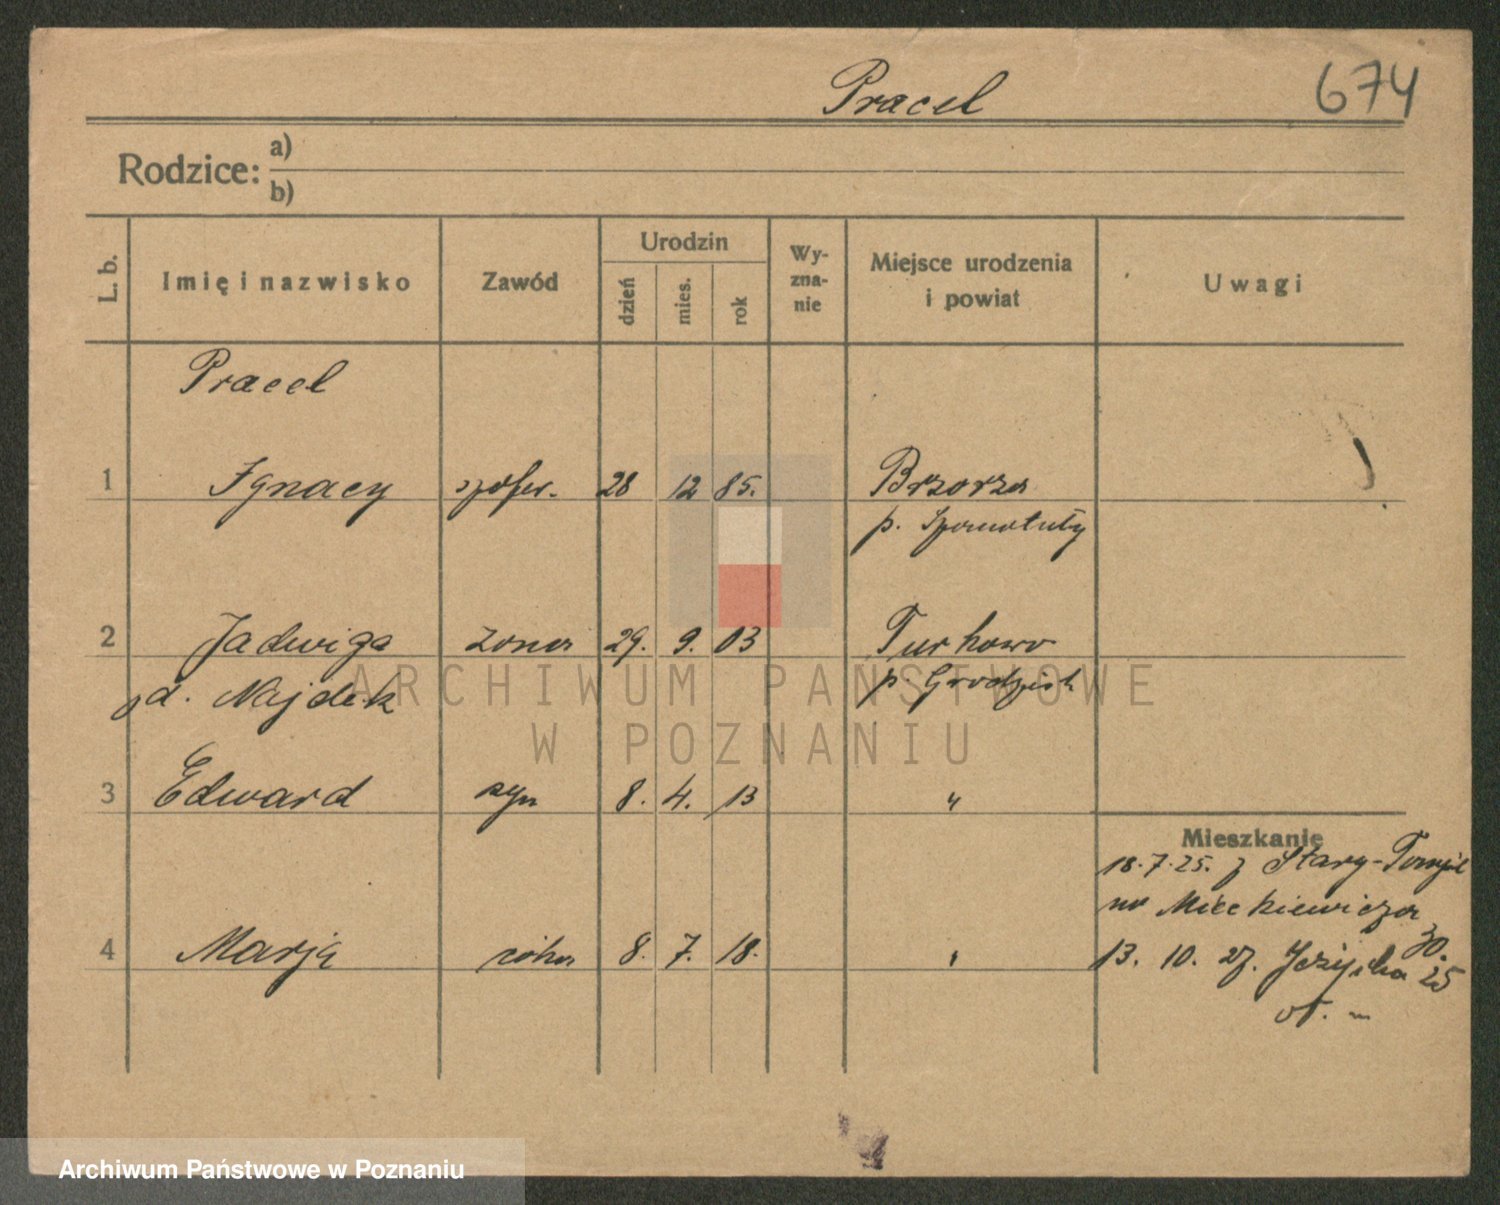 Pracel
674
Rodzice: a)
b)
L. b.
Imię i nazwisko
Zawód
Urodzin
dzień
mies.
rok
Wy-
zna-
nie
Miejsce urodzenia
i powiat
Uwagi
Pracel
1 Ignacy szofer. 28 12 85. Brzoza
p. Szamotuły
2 Jadwiga żona 29. 9. 03 Turkowo
z d. Najdek p. Grodzisk
3 Edward syn 8. 4. 13 "
Mieszkanie
18.7.25. z Stary-Tomyśl
na Mickiewicza
30.
4 Marja córka 8. 7. 18. " 13. 10. 27. 25
ARCHIWUM PAŃSTWOWE
W POZNANIU
Archiwum Państwowe w Poznaniu